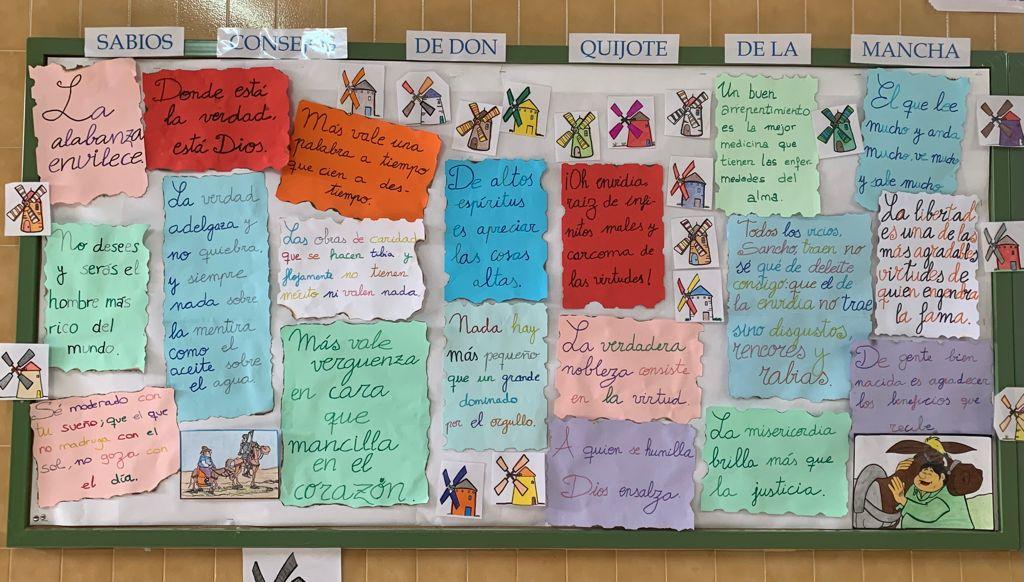 SABIOS CONSEJOS DE DON QUIJOTE DE LA MANCHA
La
alabanza
envilece.
Donde está
la verdad,
está Dios.
Más vale una
palabra a tiempo
que cien a des-
tiempo.
Un buen
arrepentimiento
es la mejor
medicina que
tienen las enfer-
medades del
alma.
El que lee
mucho y anda
mucho, ve mucho
y sabe mucho.
No desees
y serás el
hombre más
rico del
mundo.
La verdad
adelgaza y
no quiebra,
y siempre
nada sobre
la mentira
como el
aceite sobre
el agua.
Las obras de caridad
que se hacen tibia y
flojamente no tienen
mérito ni valen nada.
De altos
espíritus
es apreciar
las cosas
altas.
¡Oh envidia,
raíz de infi-
nitos males y
carcoma de
las virtudes!
Todos los vicios,
Sancho, traen no
sé qué de deleite
consigo: que el de
la envidia no trae
sino disgustos,
rencores y
rabias.
La libertad
es una de las
más agradables
virtudes de
quien engendra
la fama.
Sé moderado con
tu sueño; que el que
no madruga con el
sol, no goza con
el día.
Más vale
vergüenza
en cara
que
mancilla
en el
corazón.
Nada hay
más pequeño
que un grande
dominado
por el orgullo.
La verdadera
nobleza consiste
en la virtud.
A quien se humilla
Dios ensalza.
La misericordia
brilla más que
la justicia.
De gente bien
nacida es agradecer
los beneficios que
recibe.